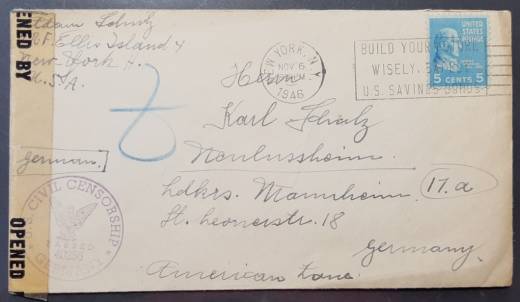 OPENED BY
Adam Schulz
Ellis Island 4
New York 4.
U.S.A.
[german]
NEW YORK, N.Y.
NOV 6
1946
BUILD YOUR FUTURE
WISELY,
U.S. SAVINGS BONDS
UNITED STATES
POSTAGE
5 CENTS 5
Herrn
Karl Schulz
Neulussheim
Ldkrs. Mannheim 17.a
St. leonerstr. 18
Germany
American Zone.
U.S. CIVIL CENSORSHIP
PASSED
GERMANY
OPENED